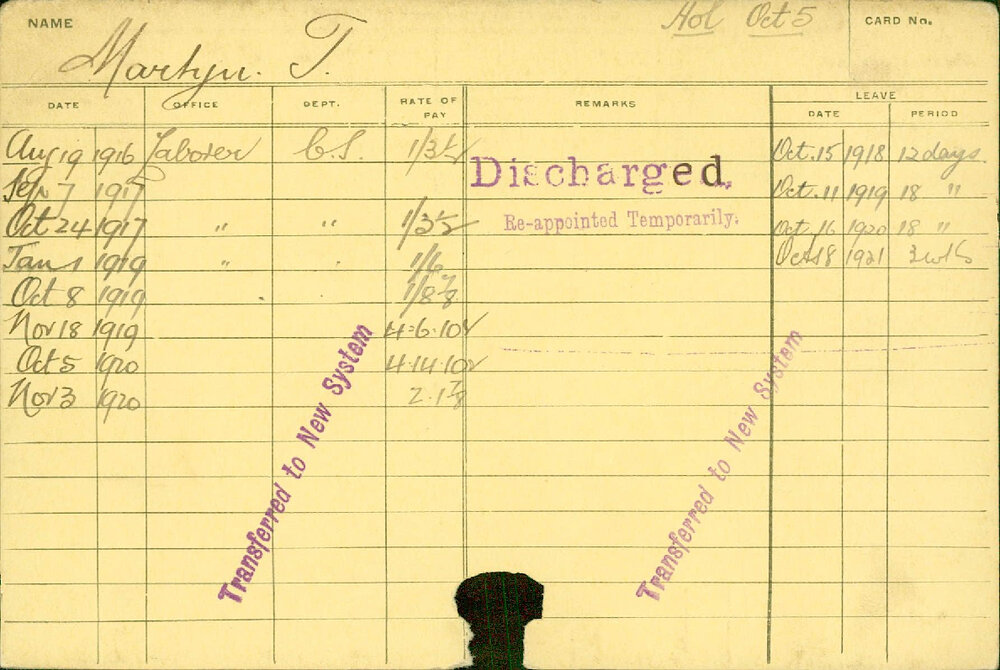 NAME Martyn. T. Hol Oct 5 CARD No.
DATE OFFICE DEPT. RATE OF PAY REMARKS LEAVE
DATE PERIOD
Aug 19 1916 Laborer C.S. 1/3½ Oct. 15 1918 12 days
Sep 7 1917 Discharged. Oct. 11 1919 18 "
Oct 24 1917 " " 1/3½ Re-appointed Temporarily. Oct. 16 1920 18 "
Jan 1 1919 " 1/6 Oct 18 1921 3 wks
Oct 8 1919 1/8⅞
Nov 18 1919 4-6-10½
Oct 5 1920 4-14-10½
Nov 3 1920 2.1⅞
Transferred to New System
Transferred to New System